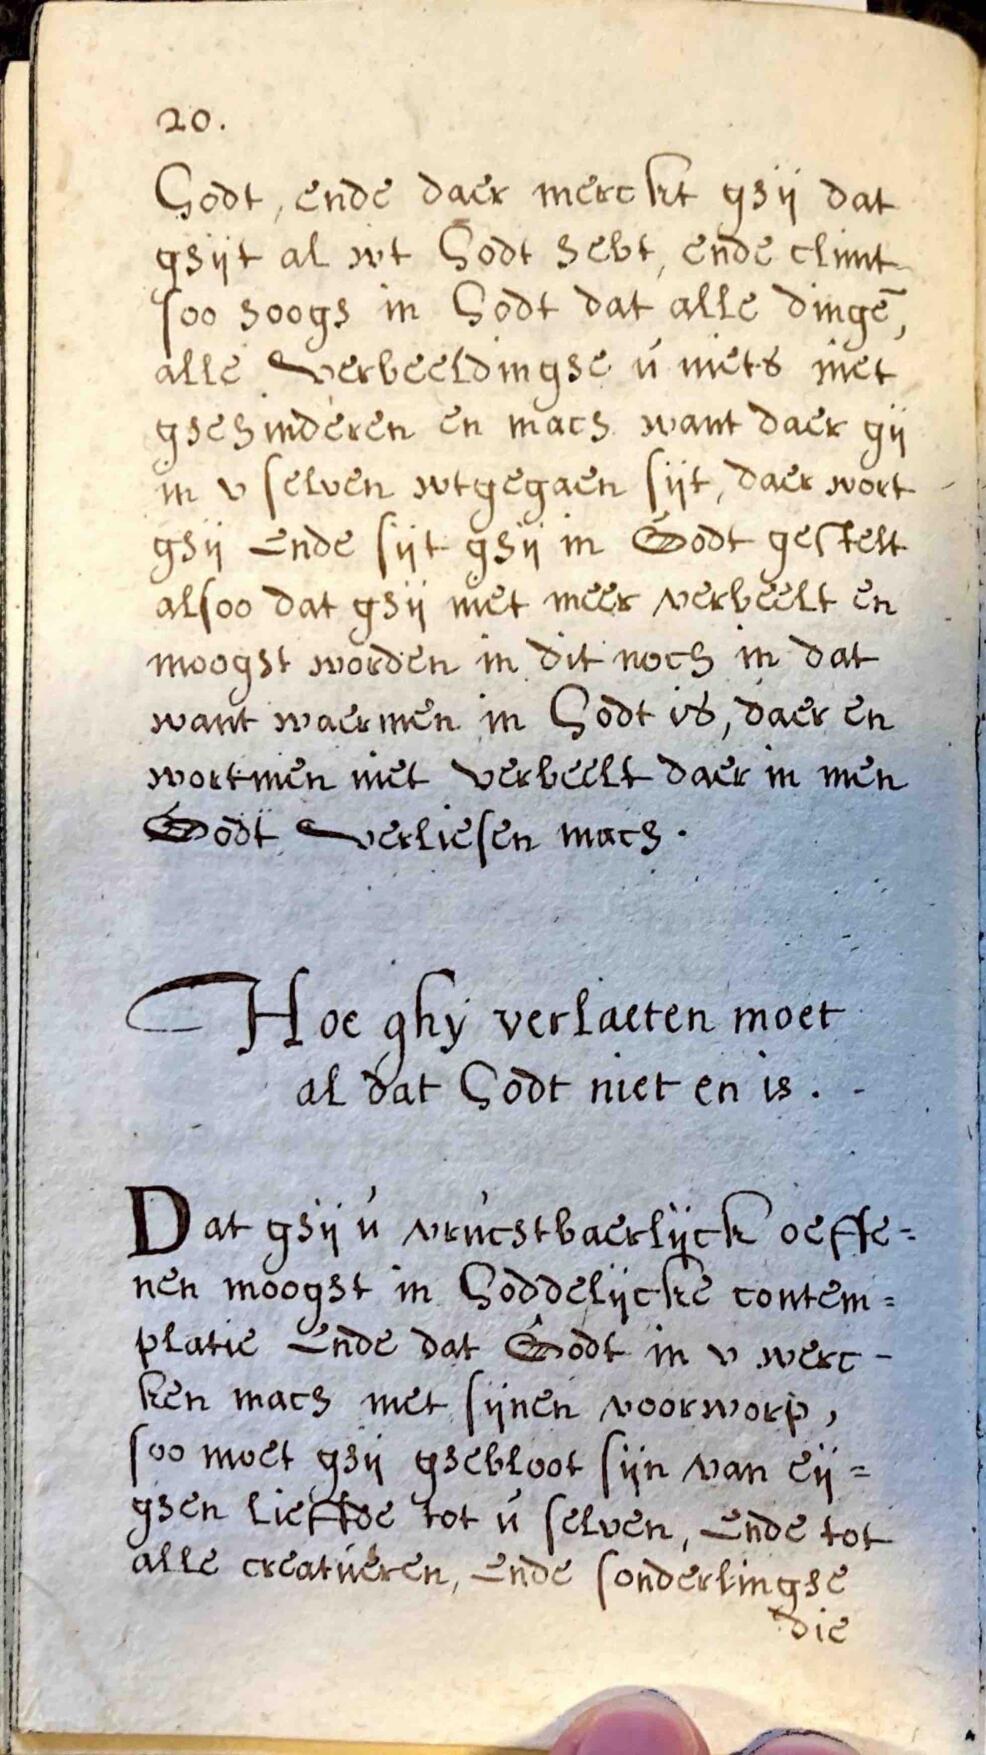 20.
Godt, ende daer merckt ghij dat
ghijt al wt Godt hebt, ende climt
soo hoogh in Godt dat alle dingē,
alle verbeeldinghe ú niets niet
ghehinderen en mach want daer gij
in v selven wtgegaen sijt, daer wort
ghij Ende sijt ghij in Godt gestelt
alsoo dat ghij niet meer verbeelt en
mooght worden in dit noch in dat
want waermen in Godt is, daer en
wortmen niet verbeelt daer in men
Godt verliesen mach.
Hoe ghy verlaeten moet
al dat Godt niet en is. -
Dat ghij ú vrúchtbaerlijck oeffe=
nen mooght in Goddelijcke contem=
platie Ende dat Godt in v werc-
ken mach met sijnen voorworp,
soo moet ghij ghebloot sijn van eij=
ghen lieffde tot ú selven, Ende tot
alle creatúeren, Ende sonderlinghe
die